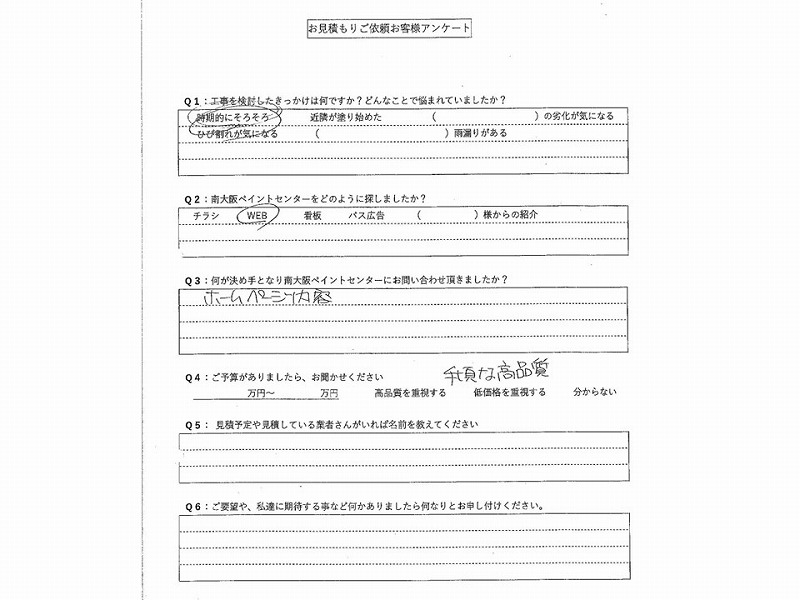 お見積もりご依頼お客様アンケート
Q1：工事を検討したきっかけは何ですか？どんなことで悩まれていましたか？
時期的にそろそろ 近隣が塗り始めた （ ）の劣化が気になる
ひび割れが気になる （ ）雨漏りがある
Q2：南大阪ペイントセンターをどのように探しましたか？
チラシ WEB 看板 バス広告 （ ）様からの紹介
Q3：何が決め手となり南大阪ペイントセンターにお問い合わせ頂きましたか？
ホームページ内容
Q4：ご予算がありましたら、お聞かせください
手頃な高品質
万円～ 万円 高品質を重視する 低価格を重視する 分からない
Q5： 見積予定や見積している業者さんがいれば名前を教えてください
Q6：ご要望や、私達に期待する事など何かありましたら何なりとお申し付けください。